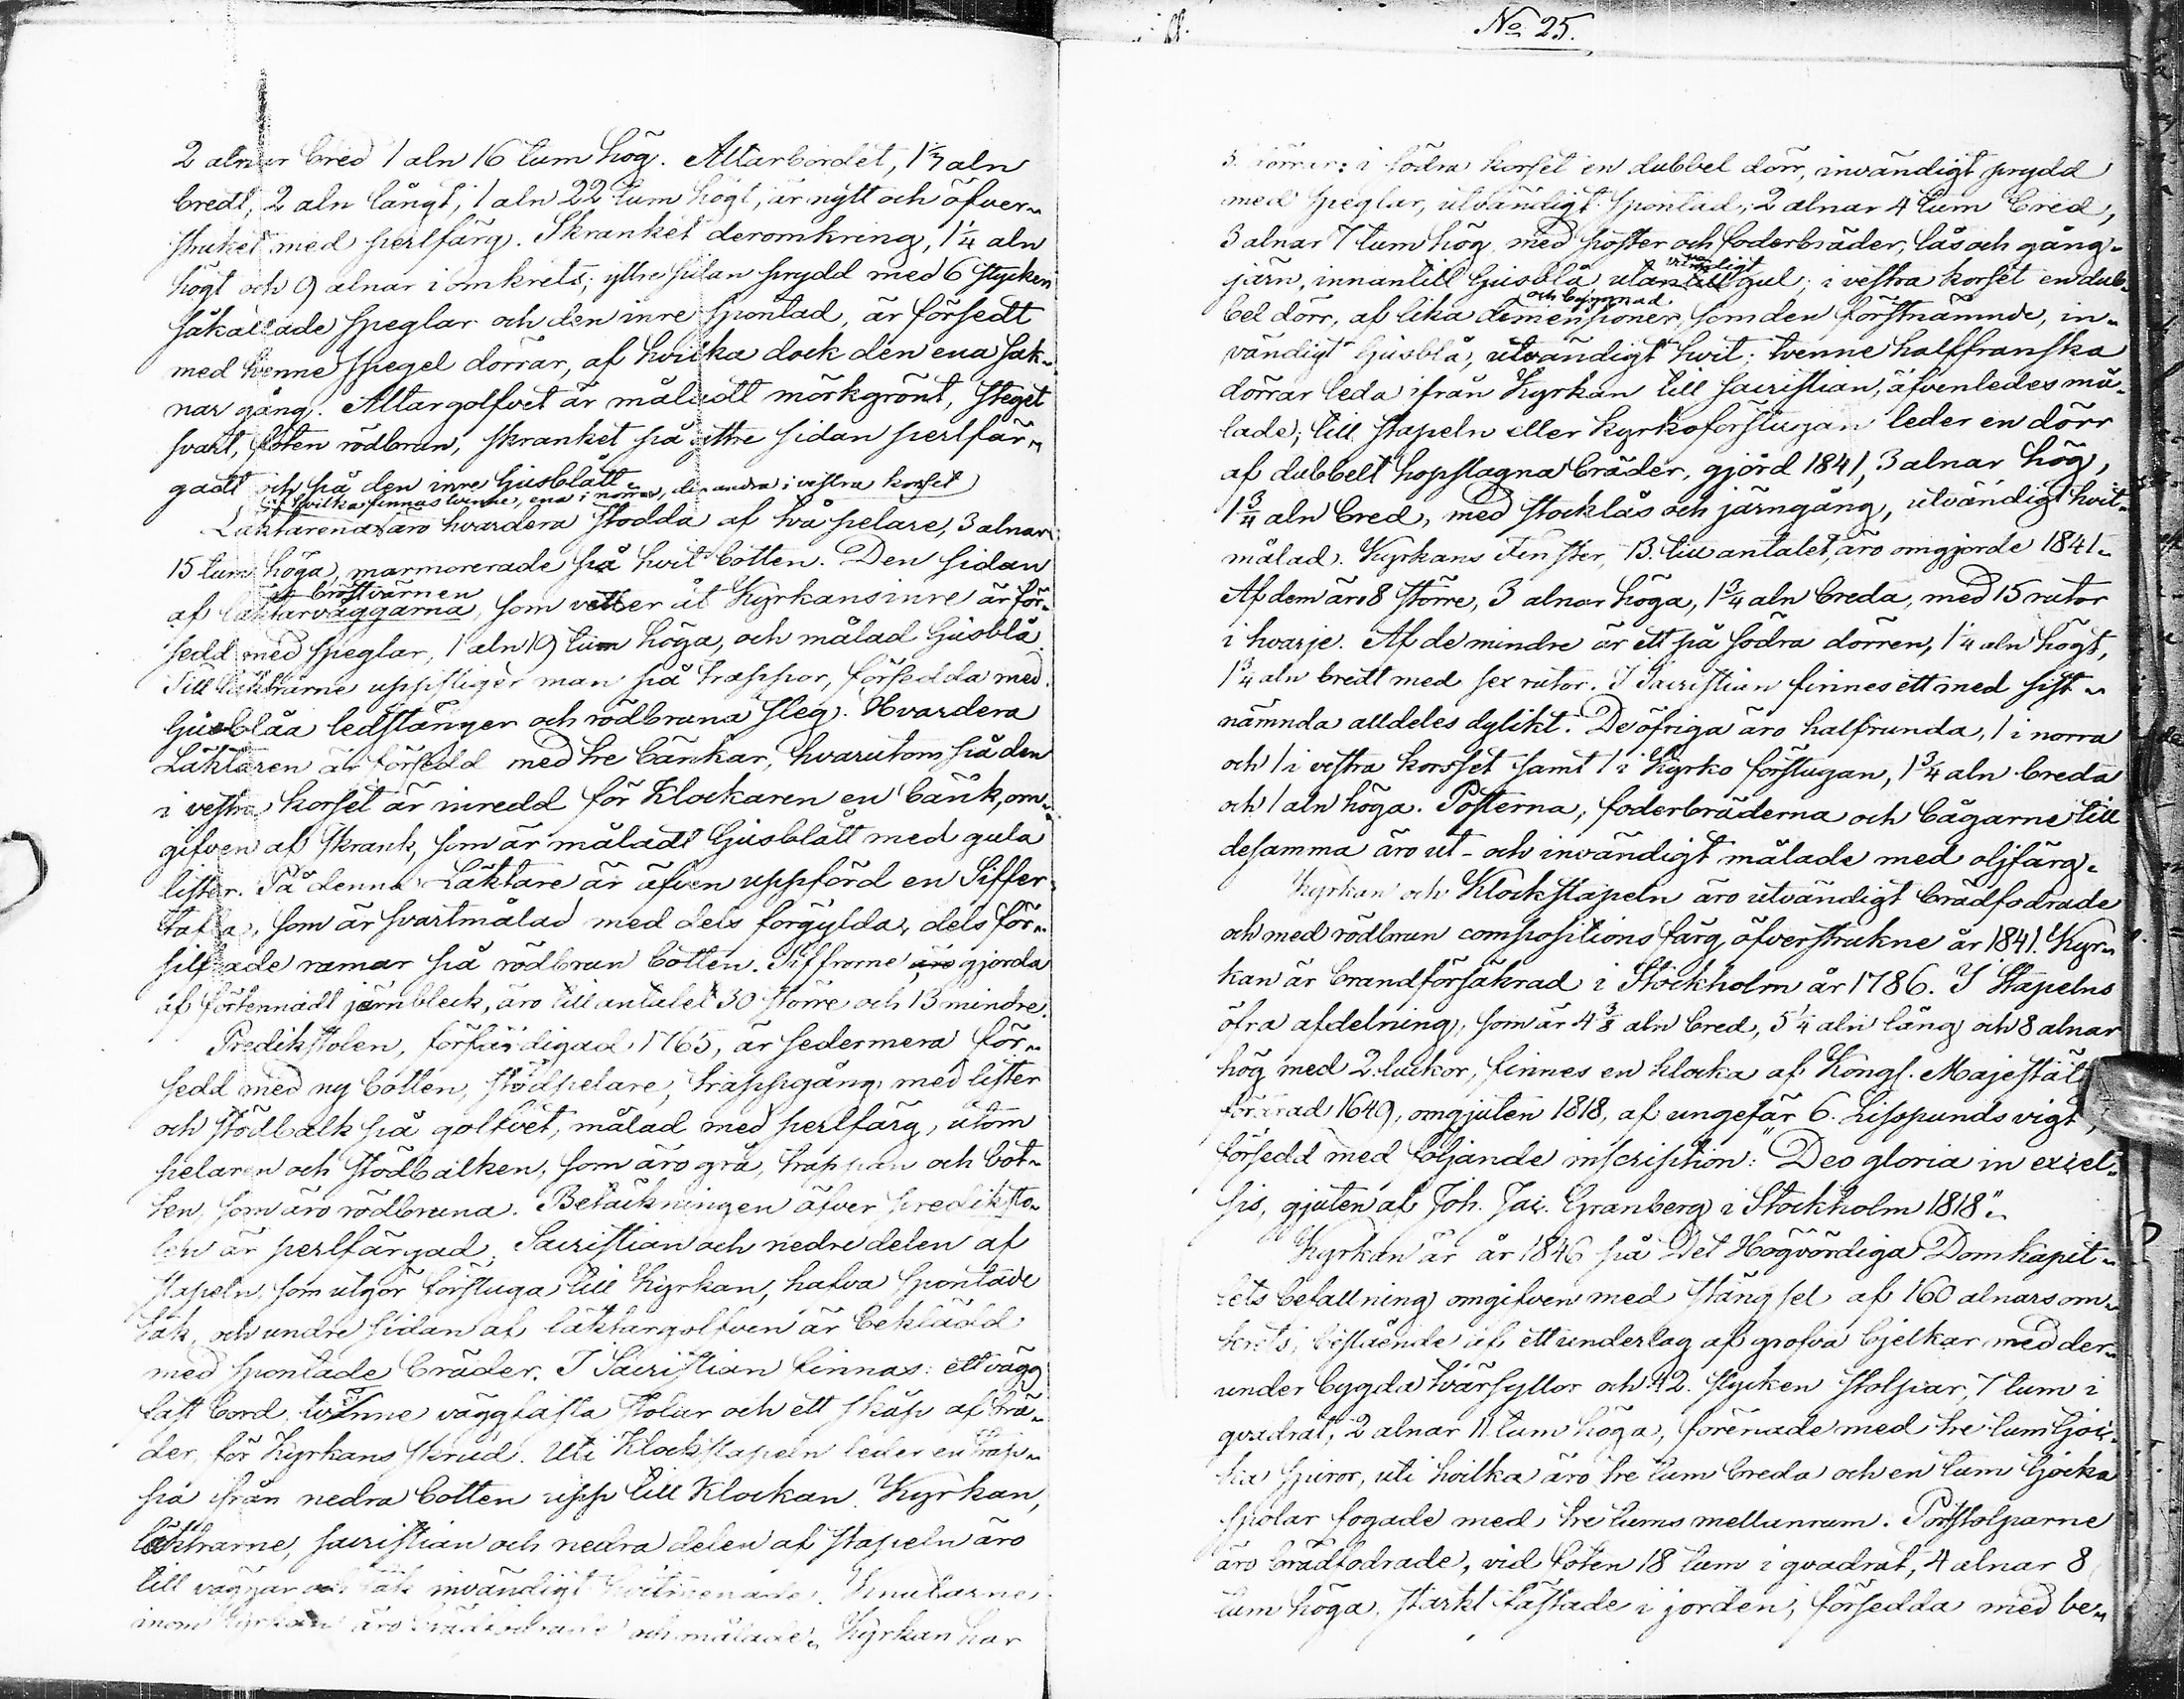 2 alnar bred 1 aln 16 tum hög. Altarbordet, 1 1/3 aln
bredt, 2 aln långt, 1 aln 22 tum högt, är nytt och öfver-
struket med perlfärg. Skranket deromkring, 1 1/4 aln
högt och 9 alnar i omkrets, yttre sidan prydd med 6 stycken
såkallade speglar och den inre spontad, är försedt
med tvenne spegel dörrar, af hvilka dock den ena sak-
nar gång. Altargolfvet är måladt mörkgrönt, steget
svart, foten rödbrun, skranket på yttre sidan perlfär-
gadt och på den inre ljusblått.
af hvilka finnas tvenne, ena i norra, den andra i vestra korset
Läktarena äro hvardera stödda af två pelare, 3 alnar
15 tum höga, marmorerade på hvit botten. Den sidan
bröstvärnen
af läktarväggarna, som vetter åt Kyrkans inre är för-
sedd med speglar, 1 aln 19 tum höga, och målad ljusblå.
Till läktrarne uppstiger man på trappor, försedda med
ljusblåa ledstänger och rödbruna steg. Hvardera
Läktaren är försedd med tre bänkar, hvarutom på den
i vestra korset är inredd för Klockaren en bänk, om-
gifven af skrank, som är måladt ljusblått med gula
lister. På denna Läktare är äfven uppförd en Siffer-
tafla, som är svartmålad med dels förgylda, dels för-
silfrade ramar på rödbrun botten. Siffrorne äro gjorda
af förtennadt jernbleck, äro till antalet 30 större och 13 mindre.
Predikstolen, förfärdigad 1765, är sedermera för-
sedd med ny botten, stödpelare, trappgång med lister
och stödbalk på golfvet, målad med perlfärg, utom
pelaren och stödbalken, som äro grå, trappan och bot-
ten, som äro rödbruna. Betäckningen öfver prediksto-
len är perlfärgad. Sacristian och nedre delen af
stapeln, som utgör förstuga till Kyrkan, hafva spontade
tak, och undre sidan af läktargolfven är beklädd
med spontade bräder. I Sacristian finnas: ett vägg
fast bord, tvänne väggfasta stolar och ett skåp af brä-
der, för Kyrkans skrud. Uti Klockstapeln leder en trap-
pa ifrån nedra botten upp till Klockan. Kyrkan,
läktrarne, sacristian och nedra delen af stapeln äro
till väggar och tak invändigt hvitmenade. Knutarne
inom Kyrkan äro brädfodrade och målade. Kyrkan har
No 25.
3 dörrar: i södra korset en dubbel dörr, invändigt prydd
med speglar, utvändigt spontad, 2 alnar 4 tum bred,
3 alnar 7 tum hög, med poster och foderbräder, lås och gång-
vändigt
järn, innantill ljusblå, utantill gul; i vestra korset en dub-
och byggnad
bel dörr, af lika dimensioner, som den förstnämnde, in-
vändigt ljusblå, utvändigt hvit; tvenne halffranska
dörrar leda ifrån Kyrkan till Sacristian, äfvenledes må-
lade; till stapeln eller kyrkoförstugan leder en dörr
af dubbelt hopslagna bräder, gjord 1841, 3 alnar hög,
1 3/4 aln bred, med stocklås och järngång, utvändigt hvit-
målad. Kyrkans Fenster, 13. till antalet, äro omgjorde 1841.
Af dem äro 8 större, 3 alnar höga, 1 3/4 aln breda, med 15 rutor
i hvarje. Af de mindre är ett på södra dörren, 1 1/4 aln högt,
1 3/4 aln bredt med sex rutor. I Sacristian finnes ett med sist-
nämnda alldeles dylikt. De öfriga äro halfrunda, 1 i norra
och 1 i vestra korsset samt 1 i Kyrko förstugan, 1 3/4 aln breda
och 1 aln höga. Posterna, foderbräderna och bågarne till
desamma äro ut- och invändigt målade med oljfärg.
Kyrkan och Klockstapeln äro utvändigt brädfodrade
och med rödbrun compositions färg öfverstrukne år 1841. Kyr-
kan är brandförsäkrad i Stockholm år 1786. I Stapelns
öfra afdelning, som är 4 3/8 aln bred, 5 1/4 aln lång och 8 alnar
hög med 2. luckor, finnes en klocka af Kongl. Majestät
förärad 1649, omgjuten 1818, af ungefär 6. Lispunds vigt,
försedd med följande inscription: "Deo gloria in excel-
sis, gjuten af Joh. Jac. Granberg i Stockholm 1818".
Kyrkan är år 1846 på Det Högvördiga Domkapit-
lets befallning omgifven med stängsel af 160 alnars om-
krets, bestående af ett underlag af grofva bjelkar med der-
under bygda tvärsyllor och 42. stycken stolpar, 7 tum i
qvadrat, 2 alnar 11 tum höga, förenade med tre tum tjoc-
ka spiror, uti hvilka äro tre tum breda och en tum tjocka
spolar fogade med tre tums mellanrum. Portstolparne
äro brädfodrade, vid foten 18 tum i qvadrat, 4 alnar 8
tum höga, starkt fästade i jorden, försedda med be-